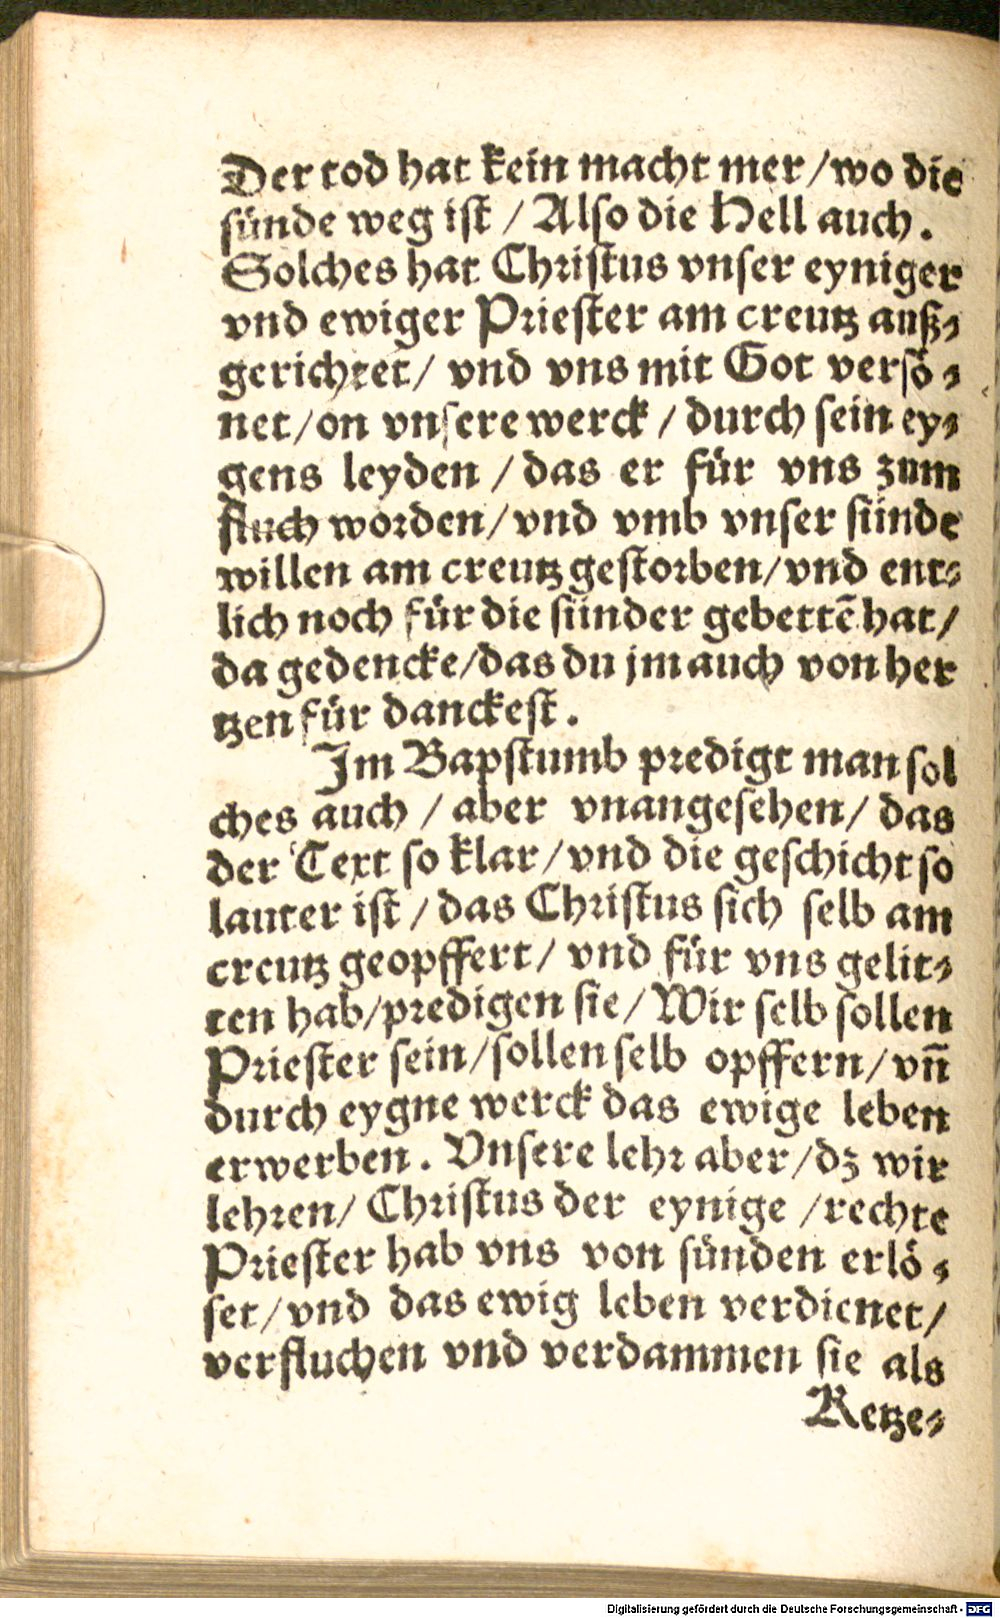 Der tod hat kein macht mer/wo die
sünde weg ist / Also die Hell auch.
Solches hat Christus vnser eyniger
vnd ewiger Priester am creutz auß⸗
gerichtet/ vnd vns mit Got versö⸗
net/on vnsere werck / durch sein ey⸗
gens leyden / das er für vns zum
fluch worden/vnd vmb vnser sünde
willen am creutz gestorben/vnd ent⸗
lich noch für die sünder gebettē hat/
da gedencke/das du jm auch von her
tzen für danckest.
Im Bapstumb predigt man sol
ches auch / aber vnangesehen/ das
der Text so klar/vnd die geschicht so
lauter ist / das Christus sich selb am
creutz geopffert/ vnd für vns gelit⸗
ten hab/predigen sie/ Wir selb sollen
Priester sein/sollen selb opffern/vn̄
durch eygne werck das ewige leben
erwerben. Vnsere lehr aber/dz wir
lehren/ Christus der eynige /rechte
Priester hab vns von sünden erlö⸗
set/vnd das ewig leben verdienet/
verfluchen vnd verdammen sie als
Ketze⸗
Digitalisierung gefördert durch die Deutsche Forschungsgemeinschaft - DFG